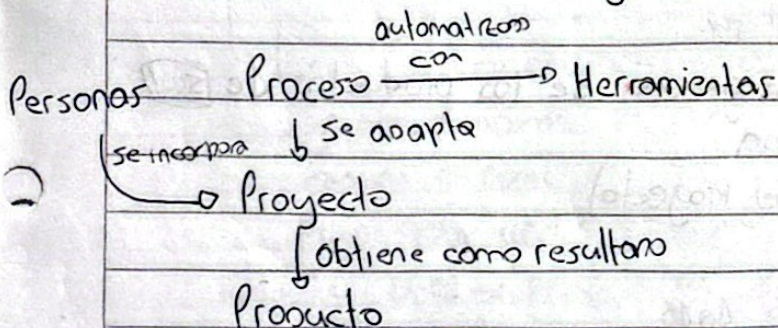 automatizado
con
Personas Proceso Herramientas
se adapta
se incorpora
Proyecto
obtiene como resultado
Producto